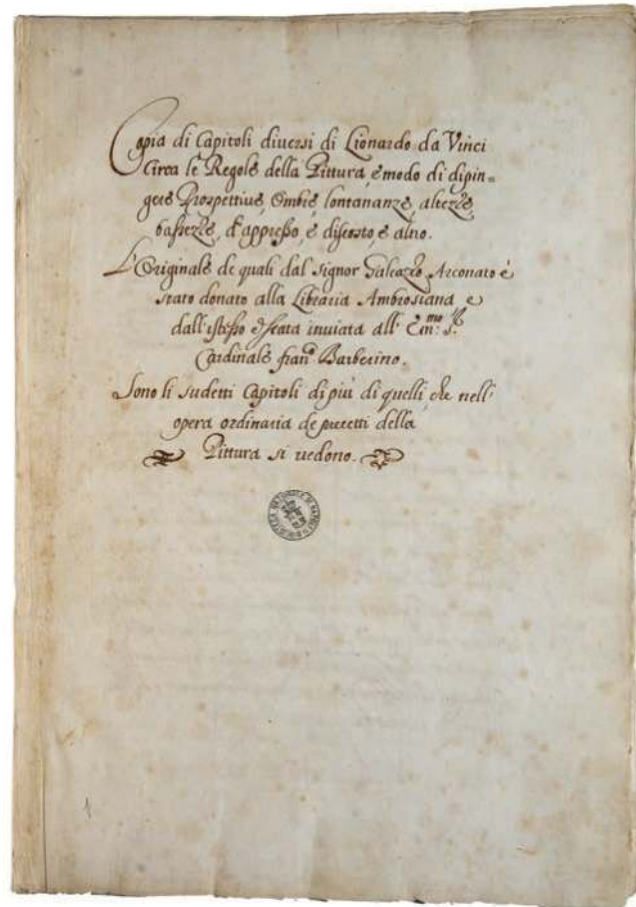 Copia di Capitoli diuersi di Lionardo da Vinci
Circa le Regole della Pittura, e modo di dipin=
gere Prospettiue, Ombre, lontananze, altezze,
bassezze, d'appresso, e discosto, e altro.
L'Originale de quali dal signor Galeazzo Arconato è
stato donato alla Libraria Ambrosiana, e
dall'istesso è stata inuiata all' Em.mo S.r
Cardinale fran.co Barberino.
Sono li sudetti Capitoli di più di quelli, che nell'
opera ordinaria de precetti della
Pittura si uedono.
BIBLIOTECA NAZIONALE DI NAPOLI